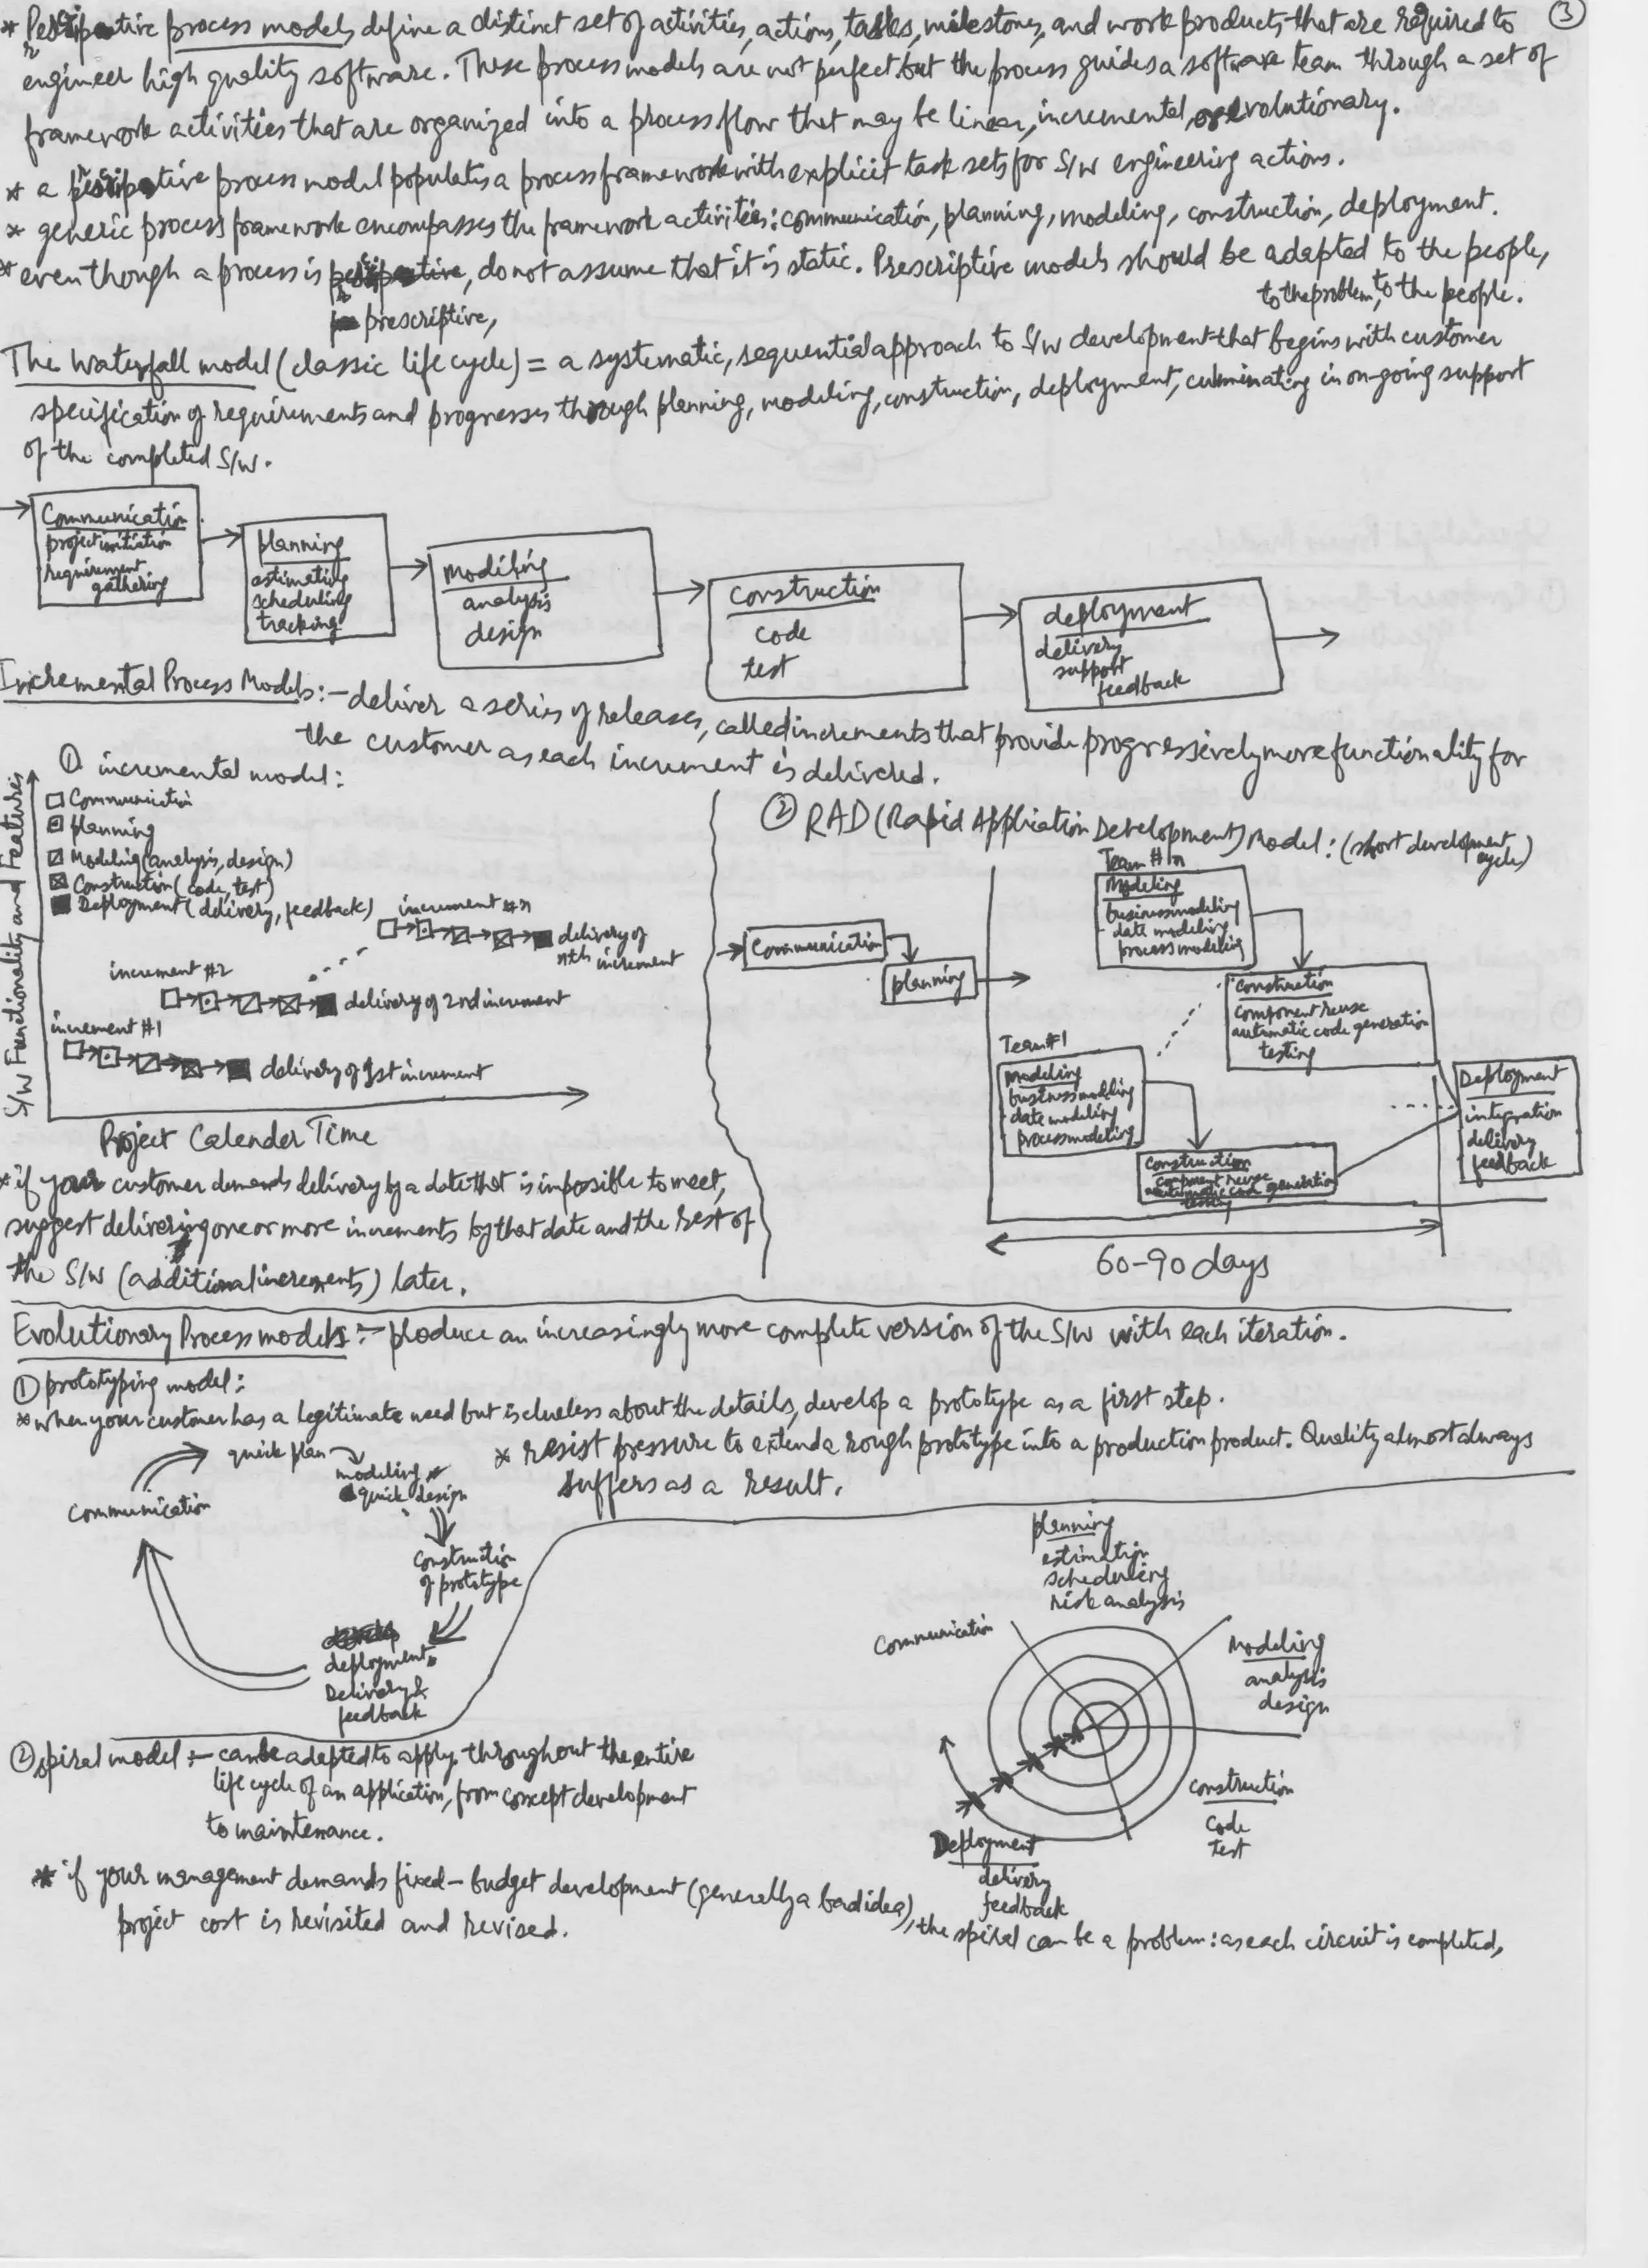 ③
* Prescriptive process models define a distinct set of activities, actions, tasks, milestones, and work products that are required to
engineer high quality software. These process models are not perfect but the process guides a software team through a set of
framework activities that are organized into a process flow that may be linear, incremental, or evolutionary.
* a prescriptive process model populates a process framework with explicit task sets for S/W engineering actions.
* generic process framework encompasses the framework activities: communication, planning, modeling, construction, deployment.
* even though a process is prescriptive, do not assume that it is static. Prescriptive models should be adapted to the people,
to the problem, to the people.
The Waterfall model (classic life cycle) = a systematic, sequential approach to S/W development that begins with customer
specification of requirements and progresses through planning, modeling, construction, deployment, culminating in on-going support
of the completed S/W.
Communication
project initiation
requirement
gathering
planning
estimating
scheduling
tracking
Modeling
analysis
design
Construction
code
test
deployment
delivery
support
feedback
Incremental Process Models:- deliver a series of releases, called increments that provide progressively more functionality for
the customer as each increment is delivered.
① incremental model:
S/W Functionality and Features
Communication
planning
Modeling (analysis, design)
Construction (code, test)
Deployment (delivery, feedback)
increment #n
delivery of
nth increment
increment #2
delivery of 2nd increment
increment #1
delivery of 1st increment
Project Calender Time
* if your customer demands delivery by a date that is impossible to meet,
suggest delivering one or more increments by that date and the rest of
the S/W (additional increments) later.
② RAD (Rapid Application Development) Model: (short development
cycle)
Communication
planning
Team #n
Modeling
business modeling
date modeling
process modeling
Construction
component reuse
automatic code generation
testing
Team #1
Modeling
business modeling
date modeling
process modeling
Construction
component reuse
automatic code generation
testing
Deployment
integration
delivery
feedback
60-90 days
Evolutionary Process models:- produce an increasingly more complete version of the S/W with each iteration.
① prototyping model:
* when your customer has a legitimate need but is clueless about the details, develop a prototype as a first step.
* resist pressure to extend a rough prototype into a production product. Quality almost always
suffers as a result.
Communication
quick plan
modeling
quick design
Construction
of prototype
deployment
Delivery &
feedback
② spiral model:- can be adapted to apply throughout the entire
life cycle of an application, from concept development
to maintenance.
Communication
planning
estimation
scheduling
risk analysis
Modeling
analysis
design
Construction
code
test
Deployment
delivery
feedback
* if your management demands fixed-budget development (generally a bad idea), the spiral can be a problem: as each circuit is completed,
project cost is revisited and revised.